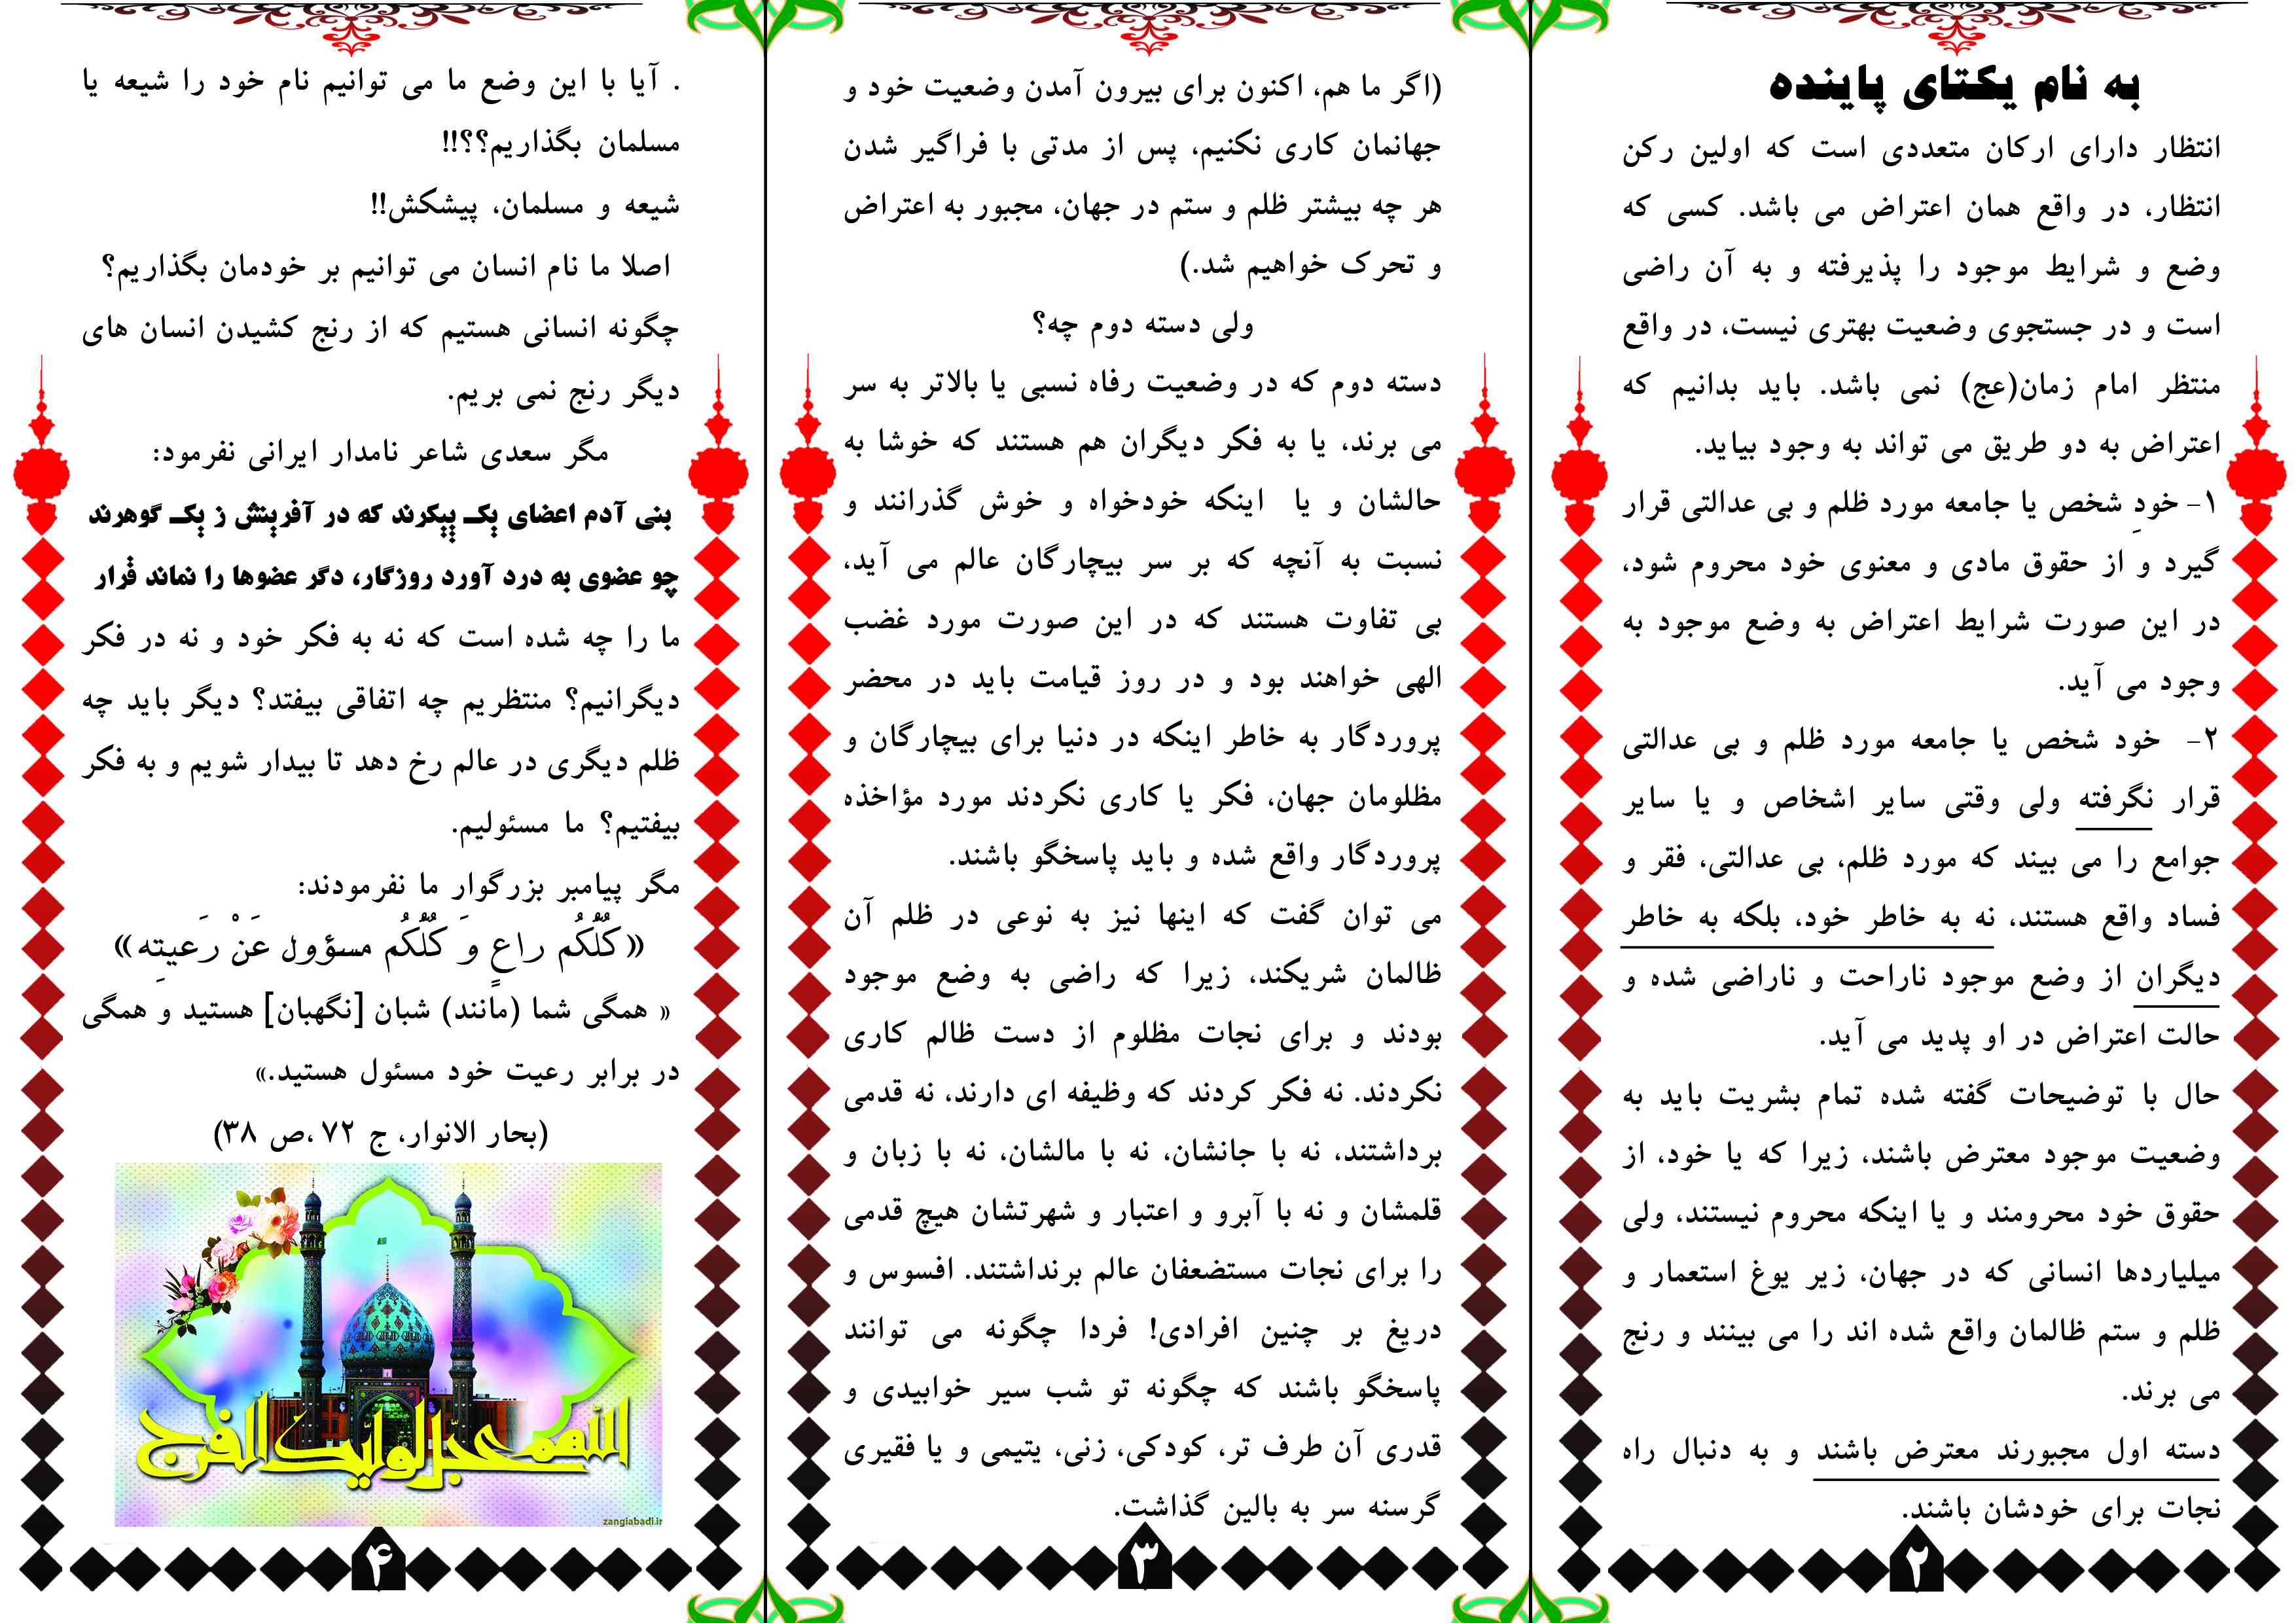 به نام یکتای پاینده
انتظار دارای ارکان متعددی است که اولین رکن
انتظار، در واقع همان اعتراض می باشد. کسی که
وضع و شرایط موجود را پذیرفته و به آن راضی
است و در جستجوی وضعیت بهتری نیست، در واقع
منتظر امام زمان(عج) نمی باشد. باید بدانیم که
اعتراض به دو طریق می تواند به وجود بیاید.
۱- خودِ شخص یا جامعه مورد ظلم و بی عدالتی قرار
گیرد و از حقوق مادی و معنوی خود محروم شود،
در این صورت شرایط اعتراض به وضع موجود به
وجود می آید.
۲- خود شخص یا جامعه مورد ظلم و بی عدالتی
قرار نگرفته ولی وقتی سایر اشخاص و یا سایر
جوامع را می بیند که مورد ظلم، بی عدالتی، فقر و
فساد واقع هستند، نه به خاطر خود، بلکه به خاطر
دیگران از وضع موجود ناراحت و ناراضی شده و
حالت اعتراض در او پدید می آید.
حال با توضیحات گفته شده تمام بشریت باید به
وضعیت موجود معترض باشند، زیرا که یا خود، از
حقوق خود محرومند و یا اینکه محروم نیستند، ولی
میلیاردها انسانی که در جهان، زیر یوغ استعمار و
ظلم و ستم ظالمان واقع شده اند را می بینند و رنج
می برند.
دسته اول مجبورند معترض باشند و به دنبال راه
نجات برای خودشان باشند.
۲
(اگر ما هم، اکنون برای بیرون آمدن وضعیت خود و
جهانمان کاری نکنیم، پس از مدتی با فراگیر شدن
هر چه بیشتر ظلم و ستم در جهان، مجبور به اعتراض
و تحرک خواهیم شد.)
ولی دسته دوم چه؟
دسته دوم که در وضعیت رفاه نسبی یا بالاتر به سر
می برند، یا به فکر دیگران هم هستند که خوشا به
حالشان و یا اینکه خودخواه و خوش گذرانند و
نسبت به آنچه که بر سر بیچارگان عالم می آید،
بی تفاوت هستند که در این صورت مورد غضب
الهی خواهند بود و در روز قیامت باید در محضر
پروردگار به خاطر اینکه در دنیا برای بیچارگان و
مظلومان جهان، فکر یا کاری نکردند مورد مؤاخذه
پروردگار واقع شده و باید پاسخگو باشند.
می توان گفت که اینها نیز به نوعی در ظلم آن
ظالمان شریکند، زیرا که راضی به وضع موجود
بودند و برای نجات مظلوم از دست ظالم کاری
نکردند. نه فکر کردند که وظیفه ای دارند، نه قدمی
برداشتند، نه با جانشان، نه با مالشان، نه با زبان و
قلمشان و نه با آبرو و اعتبار و شهرتشان هیچ قدمی
را برای نجات مستضعفان عالم برنداشتند. افسوس و
دریغ بر چنین افرادی! فردا چگونه می توانند
پاسخگو باشند که چگونه تو شب سیر خوابیدی و
قدری آن طرف تر، کودکی، زنی، یتیمی و یا فقیری
گرسنه سر به بالین گذاشت.
۳
. آیا با این وضع ما می توانیم نام خود را شیعه یا
مسلمان بگذاریم؟؟!!
شیعه و مسلمان، پیشکش!!
اصلا ما نام انسان می توانیم بر خودمان بگذاریم؟
چگونه انسانی هستیم که از رنج کشیدن انسان های
دیگر رنج نمی بریم.
مگر سعدی شاعر نامدار ایرانی نفرمود:
بنی آدم اعضای یک پیکرند که در آفرینش ز یک گوهرند
چو عضوی به درد آورد روزگار، دگر عضوها را نماند قرار
ما را چه شده است که نه به فکر خود و نه در فکر
دیگرانیم؟ منتظریم چه اتفاقی بیفتد؟ دیگر باید چه
ظلم دیگری در عالم رخ دهد تا بیدار شویم و به فکر
بیفتیم؟ ما مسئولیم.
مگر پیامبر بزرگوار ما نفرمودند:
«کُلُّکُم راعٍ وَ کُلُّکُم مسؤول عَنْ رَعیتِه»
« همگی شما (مانند) شبان [نگهبان] هستید و همگی
در برابر رعیت خود مسئول هستید.»
(بحار الانوار، ج ۷۲ ،ص ۳۸)
اللهم عجل لولیک الفرج
zangiabadi.ir
۴